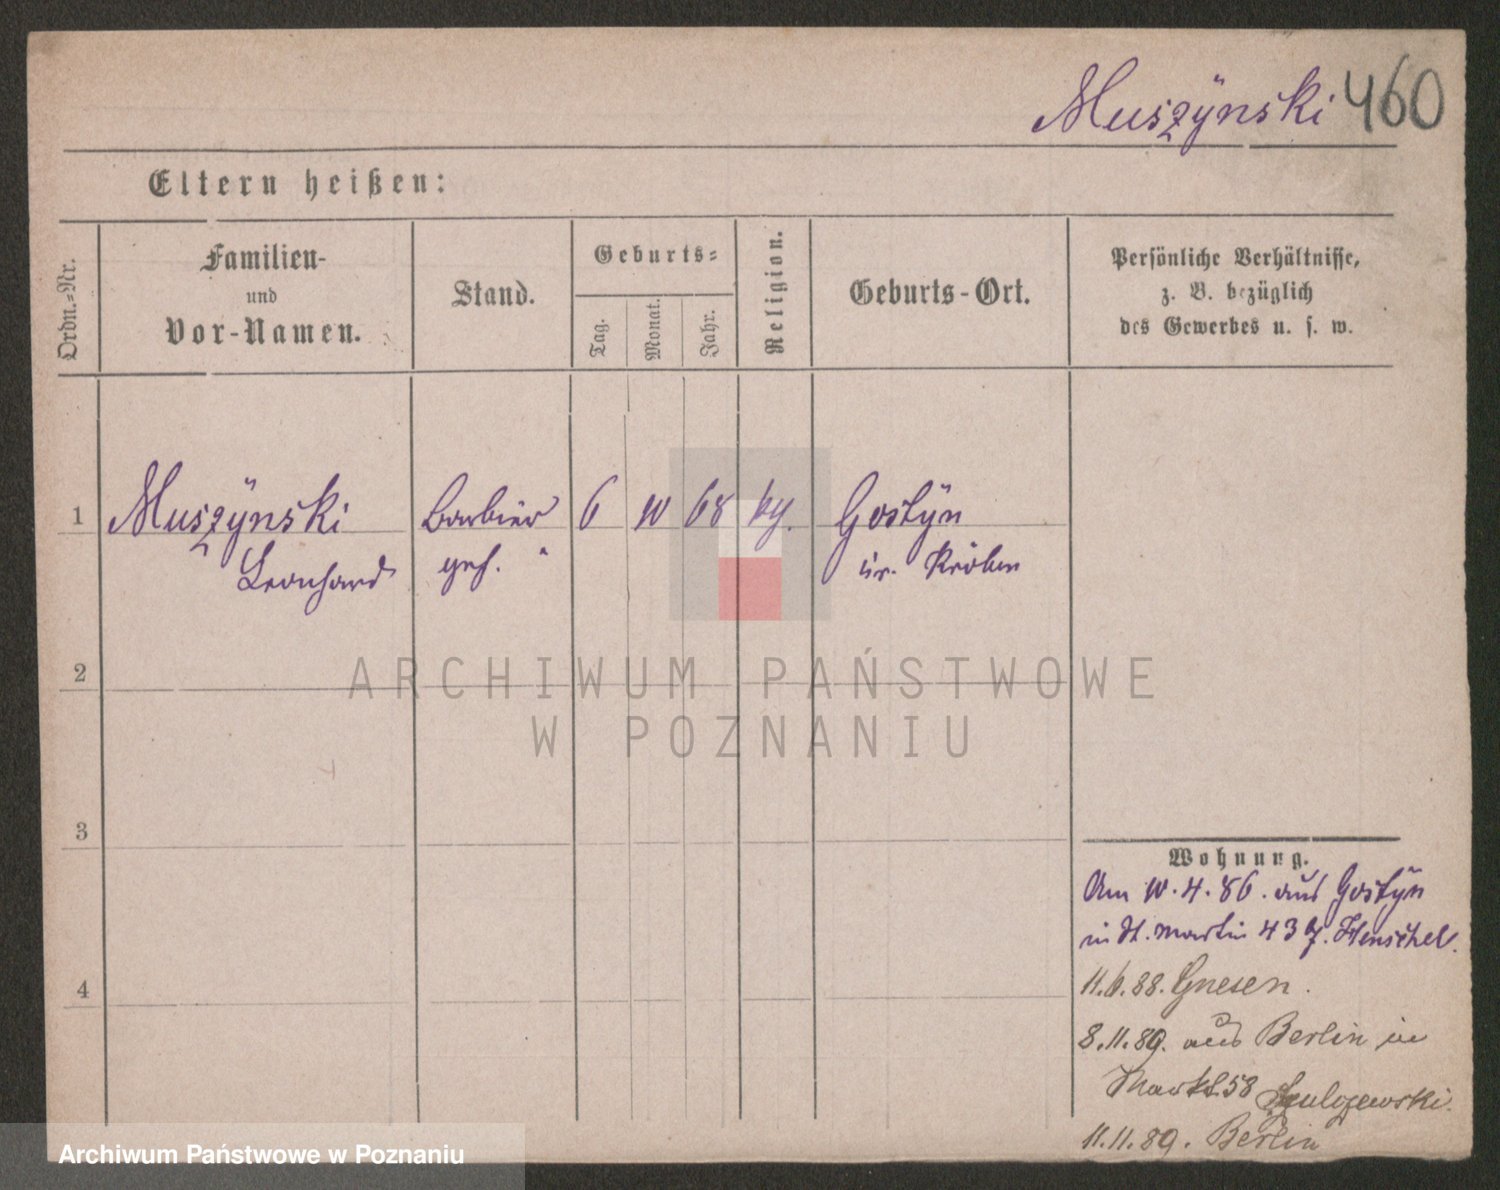 Muszÿnski 460
Eltern heißen:
Ordn.=Nr.
Familien-
und
Vor-Namen.
Stand.
Geburts=
Tag.
Monat.
Jahr.
Religion.
Geburts-Ort.
Persönliche Verhältnisse,
z. B. bezüglich
des Gewerbes u. s. w.
1 Muszÿnski Barbier 6 68 Gostÿn
Leonhard Kröben
2
ARCHIWUM PAŃSTWOWE
W POZNANIU
3
4
Wohnung.
Am 10.4.86. aus Gostÿn
in St. Martin 43 Henschel.
11.6.88. Gnesen.
8.11.89. aus Berlin in
Markt 58
11.11.89. Berlin
Archiwum Państwowe w Poznaniu